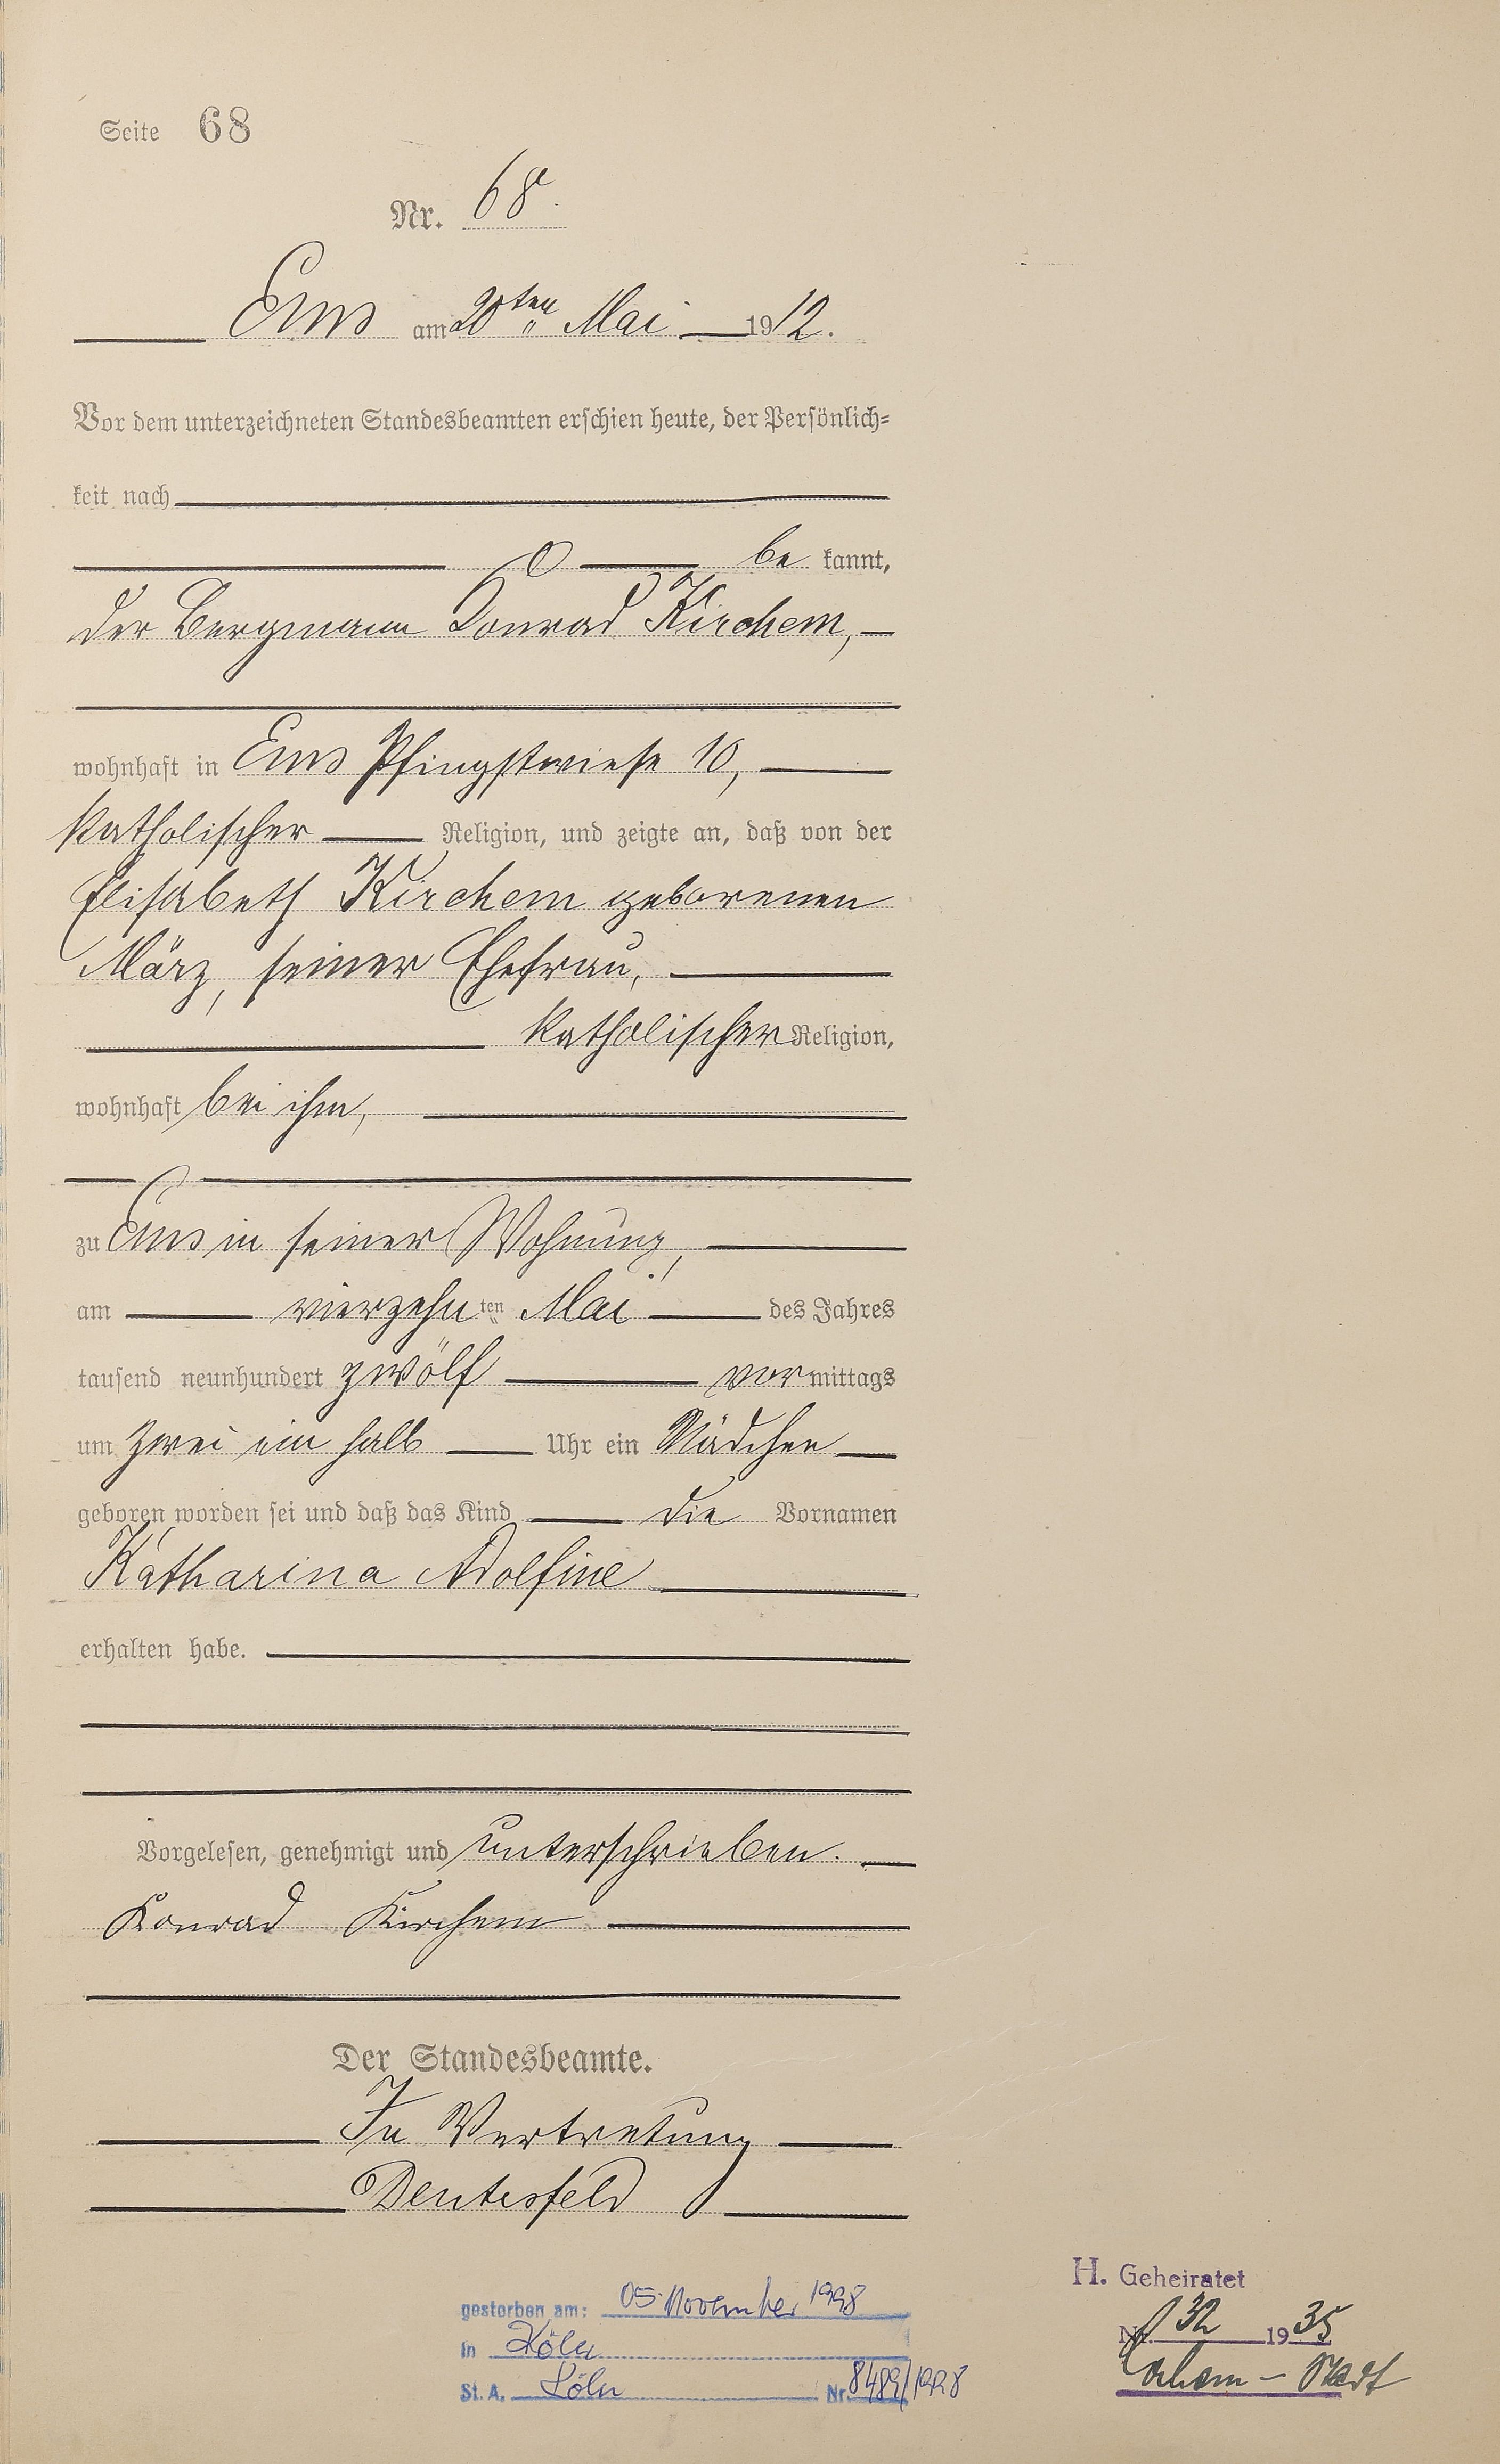 Seite 68
Nr. 68.
Ems am 20ten Mai 1912.
Vor dem unterzeichneten Standesbeamten erschien heute, der Persönlich-
keit nach
be kannt,
der Bergmann Konrad Kirchem,
wohnhaft in Ems Pfingstwiese 10,
katholischer Religion, und zeigte an, daß von der
Elisabeth Kirchem geborenen
März, seiner Ehefrau,
katholischer Religion,
wohnhaft bei ihm,
zu Ems in seiner Wohnung,
am vierzehnten Mai des Jahres
tausend neunhundert zwölf vormittags
um zwei ein halb Uhr ein Mädchen
geboren worden sei und daß das Kind die Vornamen
Katharina Adolfine
erhalten habe.
Vorgelesen, genehmigt und unterschrieben.
Konrad Kirchem
Der Standesbeamte.
In Vertretung
H. Geheiratet
Nr. 1935
gestorben am: 05. November 1998
in Köln
St. A. Köln Nr. 8489/1998